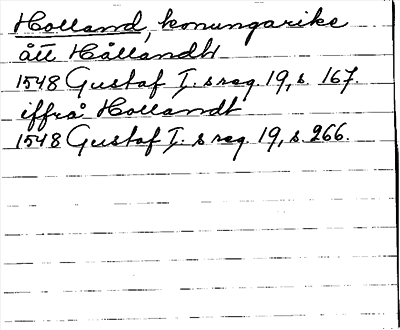 Holland, konungarike
ått Hållandh
1548 Gustaf I. s reg. 19, s. 167.
iffrå Hollandt
1548 Gustaf I. s reg. 19, s. 266.